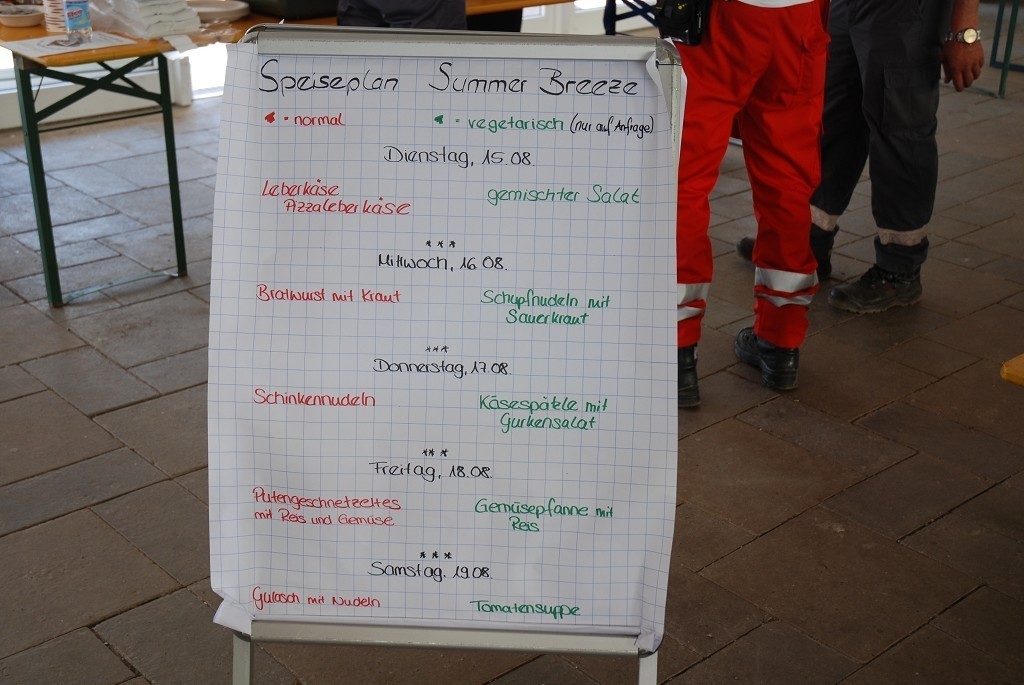 Speiseplan Summer Breeze
= normal = vegetarisch (nur auf Anfrage)
Dienstag, 15.08.
Leberkäse gemischter Salat
Pizzaleberkäse
***
Mittwoch, 16.08.
Bratwurst mit Kraut Schupfnudeln mit
Sauerkraut
***
Donnerstag, 17.08.
Schinkennudeln Käsespätzle mit
Gurkensalat
***
Freitag, 18.08.
Putengeschnetzeltes Gemüsepfanne mit
mit Reis und Gemüse Reis
***
Samstag, 19.08.
Gulasch mit Nudeln Tomatensuppe